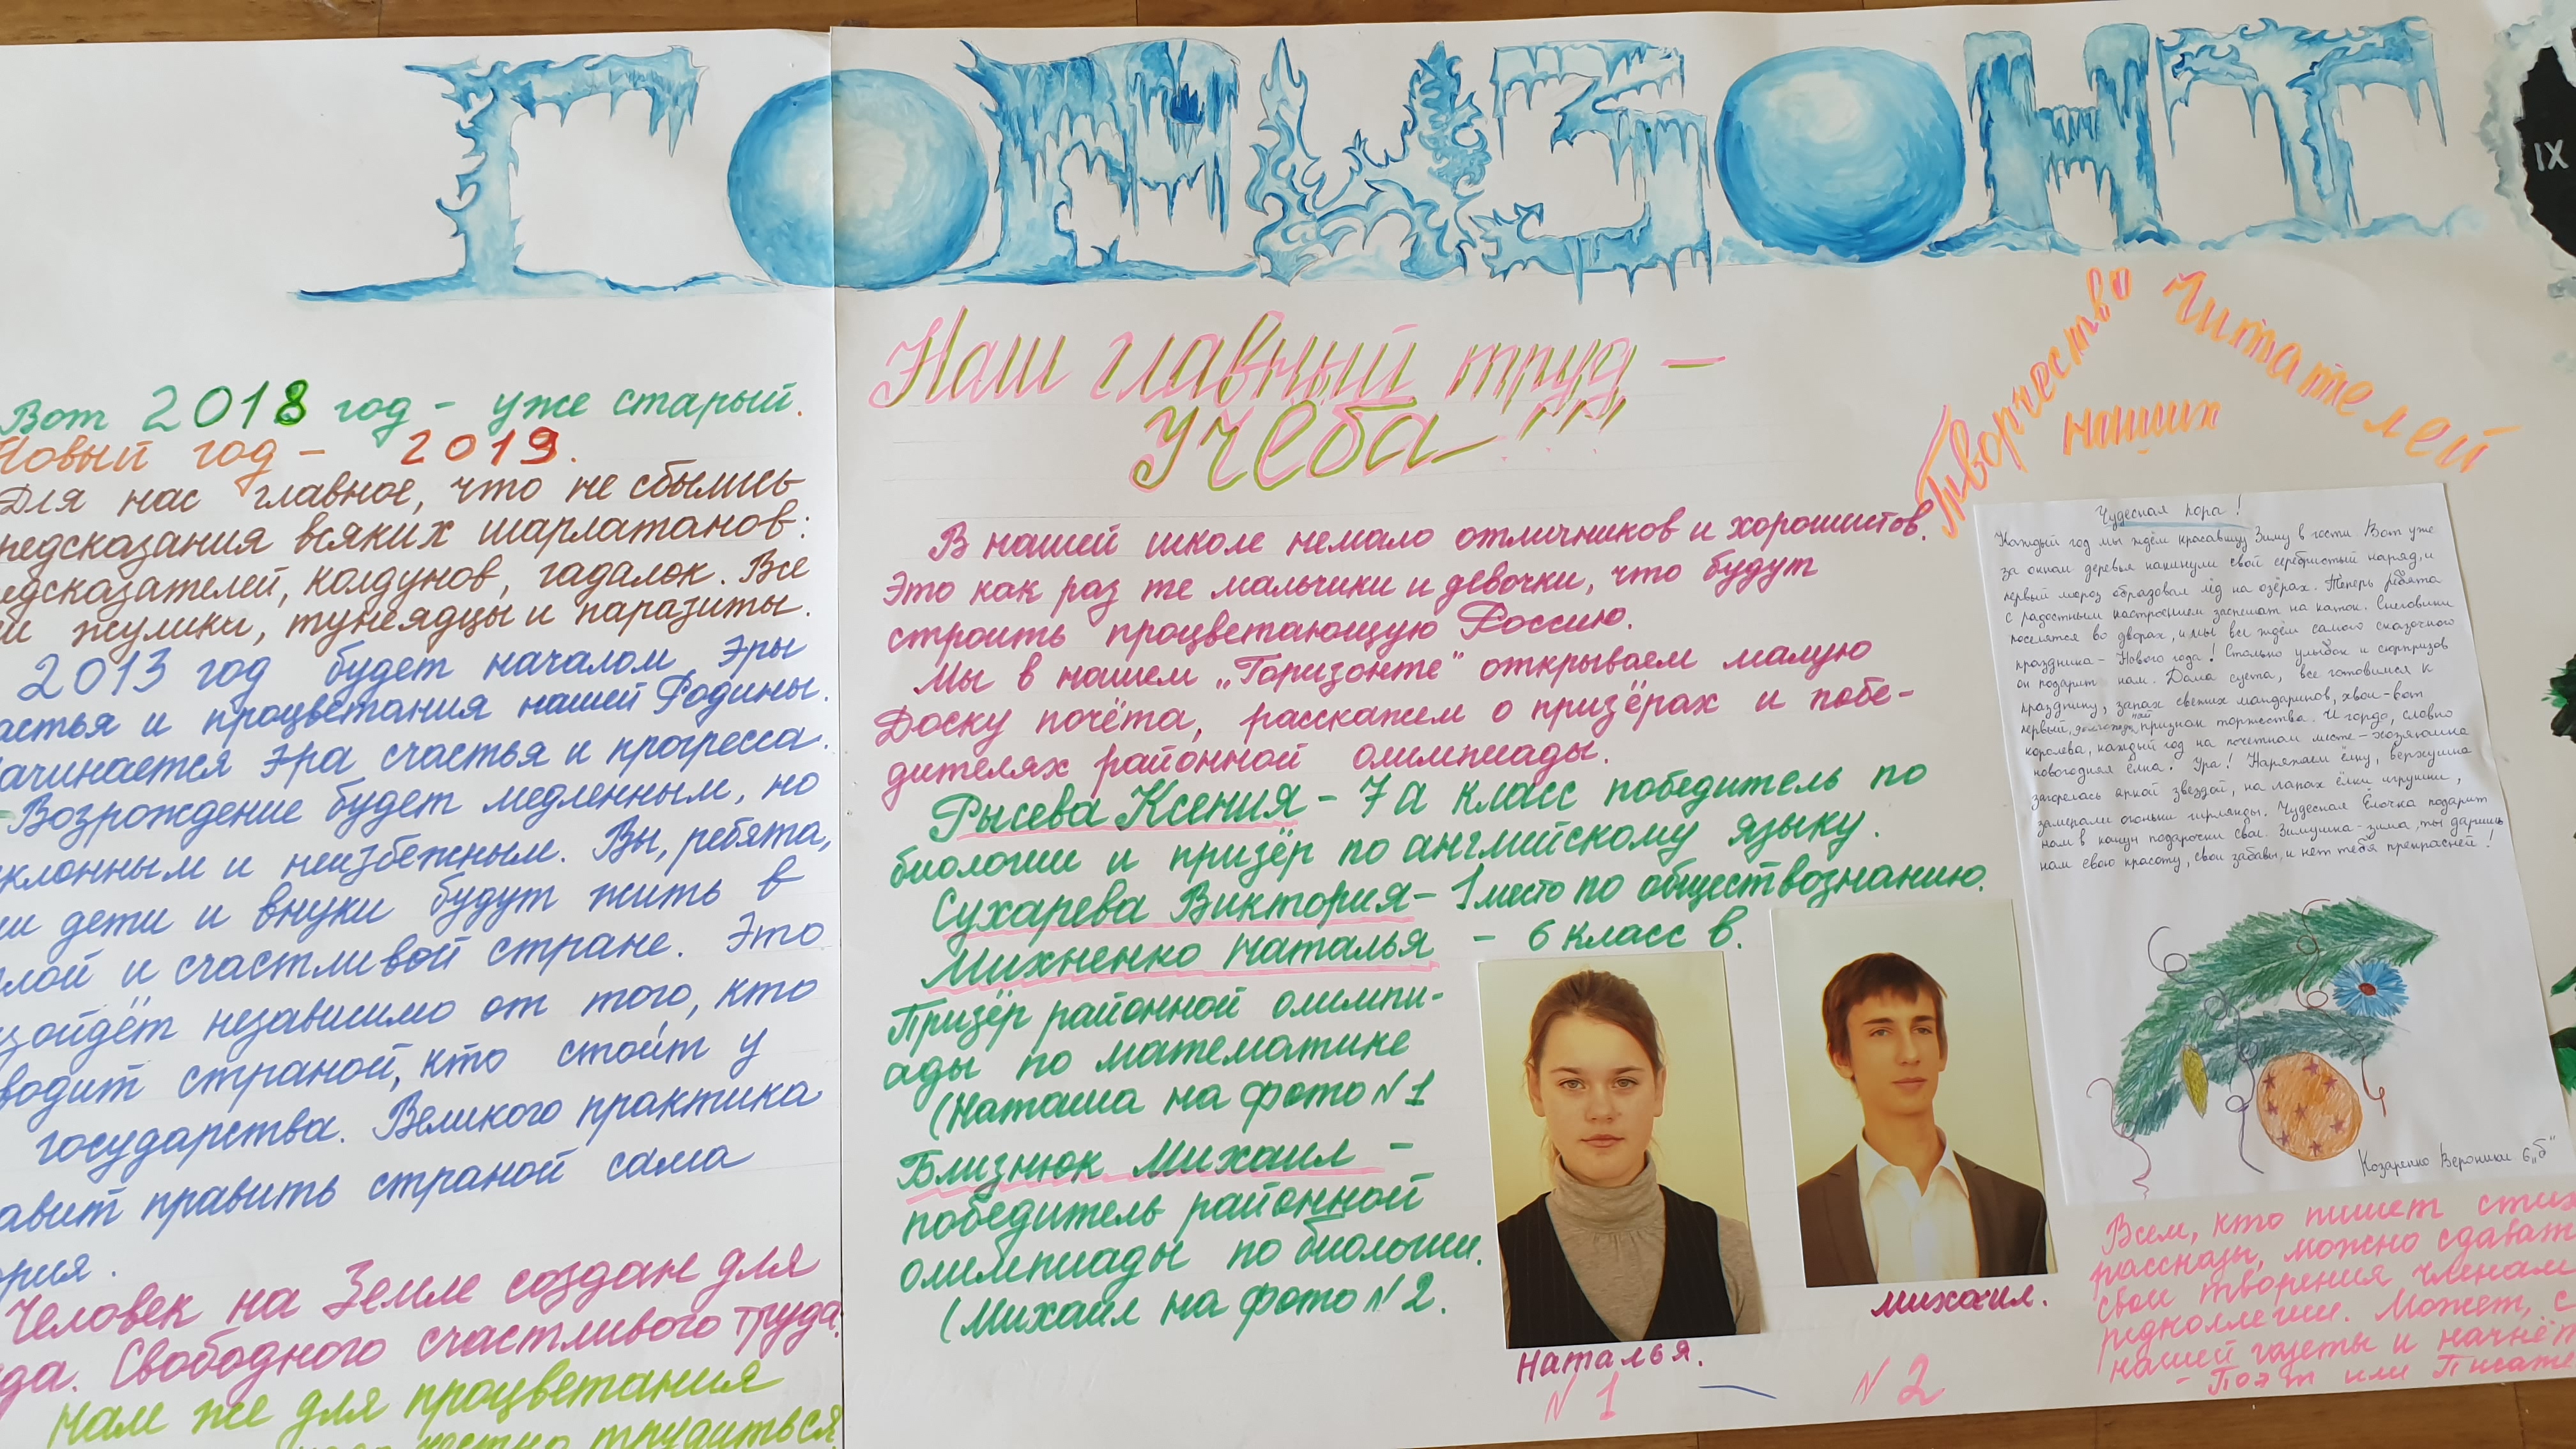 ГОРИЗОНТ
IX
Вот 2018 год - уже старый.
Новый год - 2019.
Для нас главное, что не сбылись
предсказания всяких шарлатанов:
колдунов, гадалок. Все
жулики, тунеядцы и паразиты.
2013 год будет началом эры
счастья и процветания нашей Родины.
Начинается эра счастья и прогресса.
Возрождение будет медленным, но
неуклонным и неизбежным. Вы, ребята,
дети и внуки будут жить в
и счастливой стране. Это
независимо от того, кто
страной, кто стоит у
государства. Великого практика
править страной сама
Человек на Земле создан для
Свободного счастливого труда.
Нам же для процветания
честно трудиться
Наш главный труд –
Учёба!!!
В нашей школе немало отличников и хорошистов.
Это как раз те мальчики и девочки, что будут
строить процветающую Россию.
Мы в нашем „Горизонте" открываем малую
Доску почёта, расскажем о призёрах и побе-
дителях районной олимпиады.
Рысева Ксения - 7 а класс победитель по
биологии и призёр по английскому языку.
Сухарева Виктория - 1 место по обществознанию.
Михненко Наталья - 6 класс в.
Призёр районной олимпи-
ады по математике
(Наташа на фото N 1
Близнюк Михаил -
победитель районной
олимпиады по биологии.
(Михаил на фото N 2.
Наталья.
N 1
Михаил.
N 2
Творчество
наших
Читателей
Чудесная пора!
Каждый год мы ждём красавицу Зиму в гости. Вот уже
за окном деревья накинули свой серебристый наряд, и
первый мороз образовал лёд на озёрах. Теперь ребята
с радостным настроением заспешат на каток. Снеговики
поселятся во дворах, и мы все ждём самого сказочного
праздника - Нового года! Столько улыбок и сюрпризов
он подарит нам. Дома суета, все готовимся к
празднику, запах свежих мандаринов, хвои - вот
первый, признак торжества. И гордо, словно
королева, каждый год на почетном месте - хозяюшка
новогодняя ёлка. Ура! Наряжаем ёлку, верхушка
загорелась яркой звездой, на лапах ёлки игрушки,
замерцали огоньки гирлянды. Чудесная Ёлочка подарит
нам в канун подарочки свои. Зимушка-зима, ты даришь
нам свою красоту, свои забавы, и нет тебя прекрасней!
Козаренко Вероники 6„б"
Всем, кто пишет
рассказы, можно сдавать
свои творения членам
редколлегии. Может, с
нашей газеты и начнёт
- Поэт или